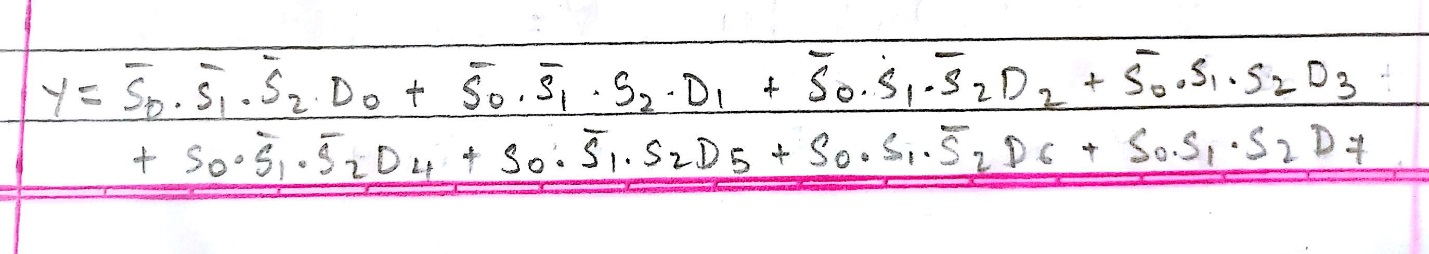 y = S̄₀.S̄₁.S̄₂.D₀ + S̄₀.S̄₁.S₂.D₁ + S̄₀.S₁.S̄₂D₂ + S̄₀.S₁.S₂D₃
+ S₀.S̄₁.S̄₂D₄ + S₀.S̄₁.S₂D₅ + S₀.S₁.S̄₂D₆ + S₀.S₁.S₂D₇